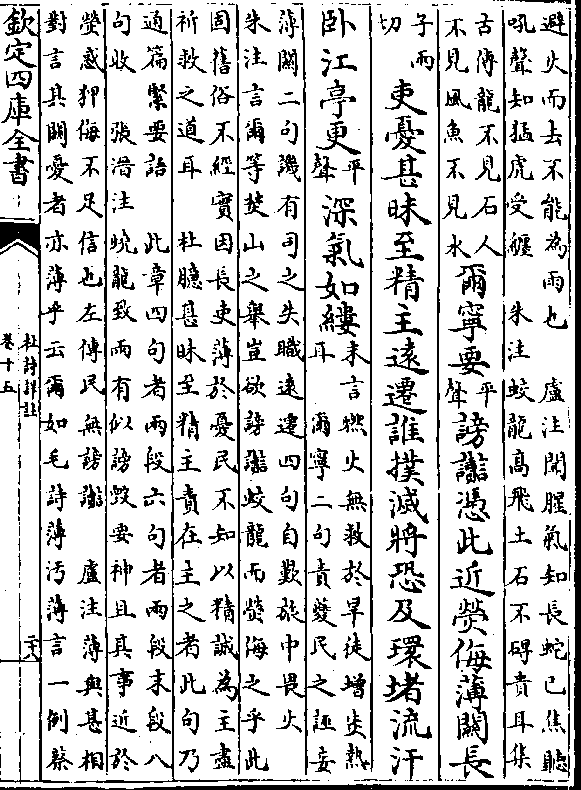 避火而去不能為雨也　盧注聞腥氣知長蛇已焦聽
吼聲知猛虎受纒　朱注蛟龍高飛土石不碍責耳集
古傳龍不見石人
不見風魚不見水
爾寧要平
聲
謗讟憑此近熒侮薄關長
子兩
切
吏憂甚昧至精主遠遷誰撲滅將恐及環堵流汗
卧江亭更平
聲
深氣如縷末言燃火無救於旱徒增炎熱
耳　爾寧二句責夔民之誣妄
薄關二句譏有司之失職遠遷四句自歎旅中畏火
朱注言爾等焚山之舉豈欲謗讟蛟龍而熒侮之乎此
固舊俗不經實因長吏薄於憂民不知以精誠為主盡
祈救之道耳　杜臆甚昧至精主責在主之者此句乃
通篇緊要語　此章四句者兩段六句者兩段末段八
句收　張溍注燒龍致雨有似謗毀要神且其事近於
熒惑狎侮不足信也左傳民無謗讟　盧注薄與甚相
對言其關憂者亦薄乎云爾如毛詩薄汚薄言一例蔡
欽定四庫全書
杜詩詳註
卷十五
二十八